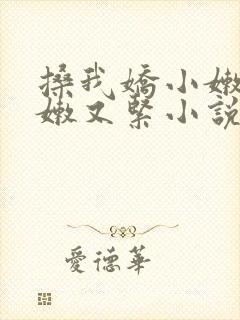 搡我嬌小嫩
嫩又緊小說
愛德華